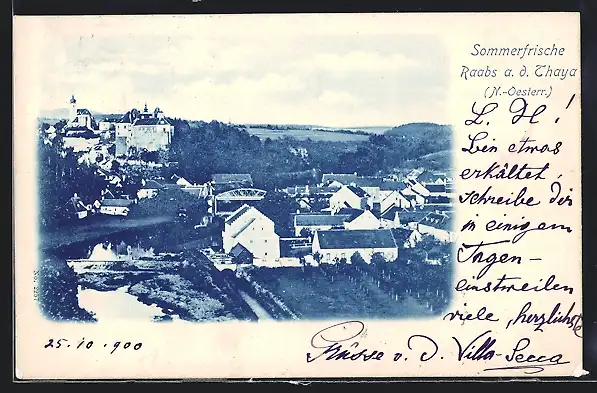 Sommerfrische
Raabs a. d. Thaya
(N.-Oesterr.)
L. H!
Bin etwas
erkältet,
schreibe dir
in einigem
Tagen-
einstweilen
viele, herzliche
Grüsse v. D. Villa-Secca
25.10.900